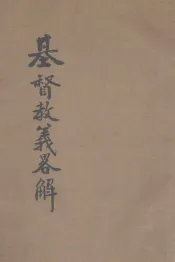 基督教義畧解